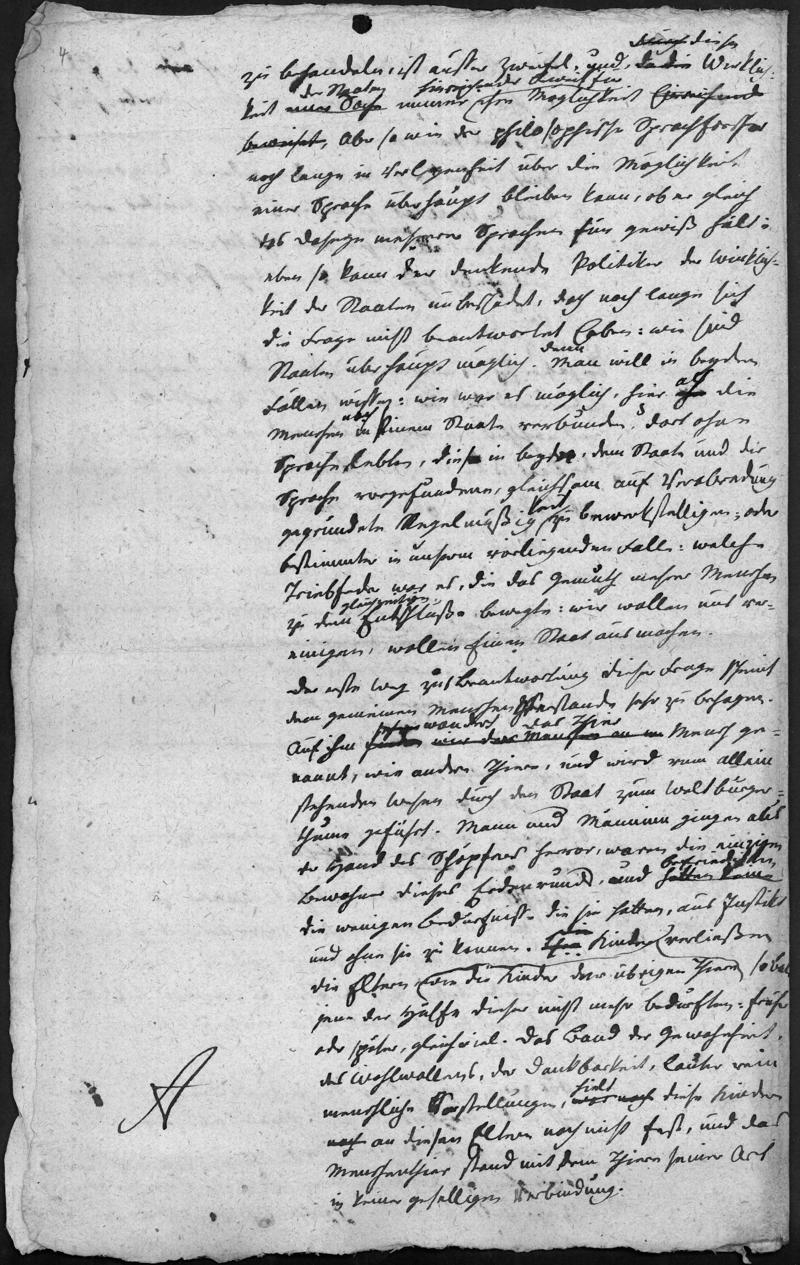 4
diese
zu behandeln, ist ausser Zweifel, und, Wirklich-
der Staaten hinreichender Beweis für
keit ihre Möglichkeit hinreichend
beweiset, Aber so wie der philosophische Sprachforscher
noch lange in Verlegenheit über die Möglichkeit
einer Sprache überhaupt bleiben kann, ob er gleich
das Daseyn mehrerer Sprachen für gewiß hält:
eben so kann der denkende Politiker der Wirklich-
keit der Staaten unbeschadet, doch noch lange sich
die Frage nicht beantwortet haben: wie sind
Staaten überhaupt möglich. denn Man will in beyden
Fällen wissen: wie war es möglich, hier als die
Menschen noch in keinem Staate verbunden, dort ohne
Sprache lebten, diese in beyden, dem Staate und der
Sprache vorgefundene, gleichsam auf Verabredung
gegründete Regelmäßigkeit zu bewerkstelligen; oder
bestimmter in unserm vorliegenden Fall: welche
Triebfeder war es, die das Gemüth mehrer Menschen
zu dem Entschluße bewegte: wir wollen uns ver-
einigen, wollen Einen Staat ausmachen.
Der erste Weg zur Beantwortung dieser Frage scheint
dem gemeinen Menschenverstande sehr zu behagen.
Auf ihm wandert das Thier Mensch ge-
nannt, wie andere Thiere, und wird vom allein
stehenden Wesen durch den Staat zum Weltbürger-
thume geführt. Mann und Männinn gingen aus
der Hand des Schöpfers hervor, waren die einzigen
Bewohner dieses Erdenrunds, und befriedigten
die wenigen Bedürfniße die sie hatten, aus Instikt
und ohne sie zu kennen. Kinder verließen
die Eltern wie die Kinder der übrigen Thiere, sobald
jene der Hülfe dieser nicht mehr bedurften: früher
oder später, gleichviel. Das Band der Gewohnheit,
des Wohlwollens, der Dankbarkeit, lauter rein
menschliche Vorstellungen, hielt diese Kinder
noch an diesen Eltern noch nicht fest, und das
Menschenthier stand mit dem Thiere seiner Art
in keiner geselligen Verbindung.